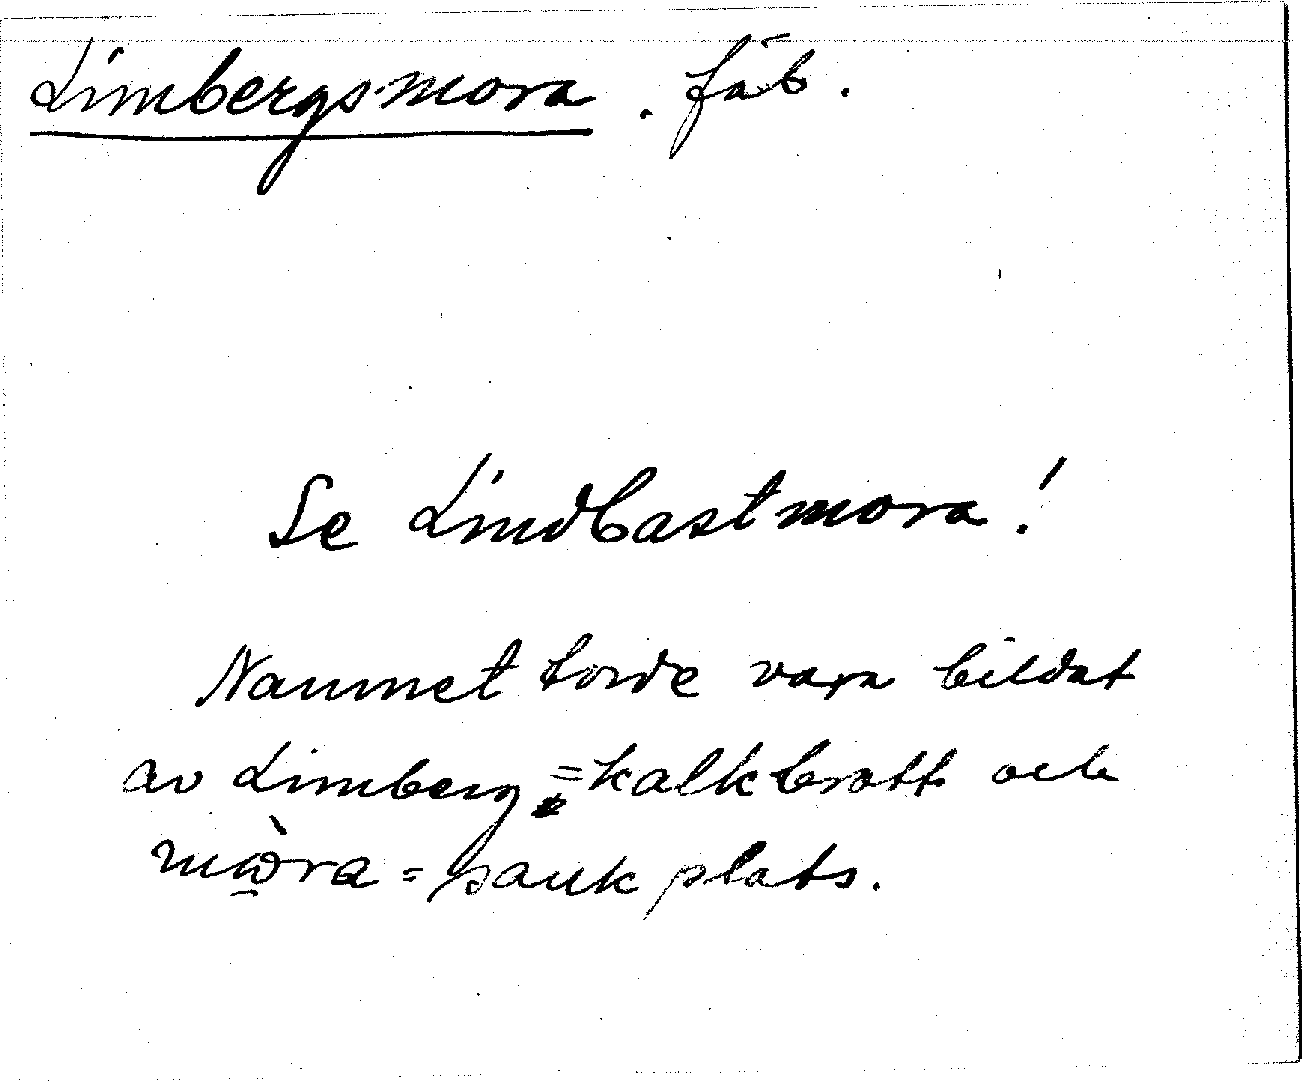 Limbergsmora . fäb .
Se Lindbastmora !
Namnet torde vara bildat
av Limberg = kalkbrott och
mὼ̱ra = sank plats.